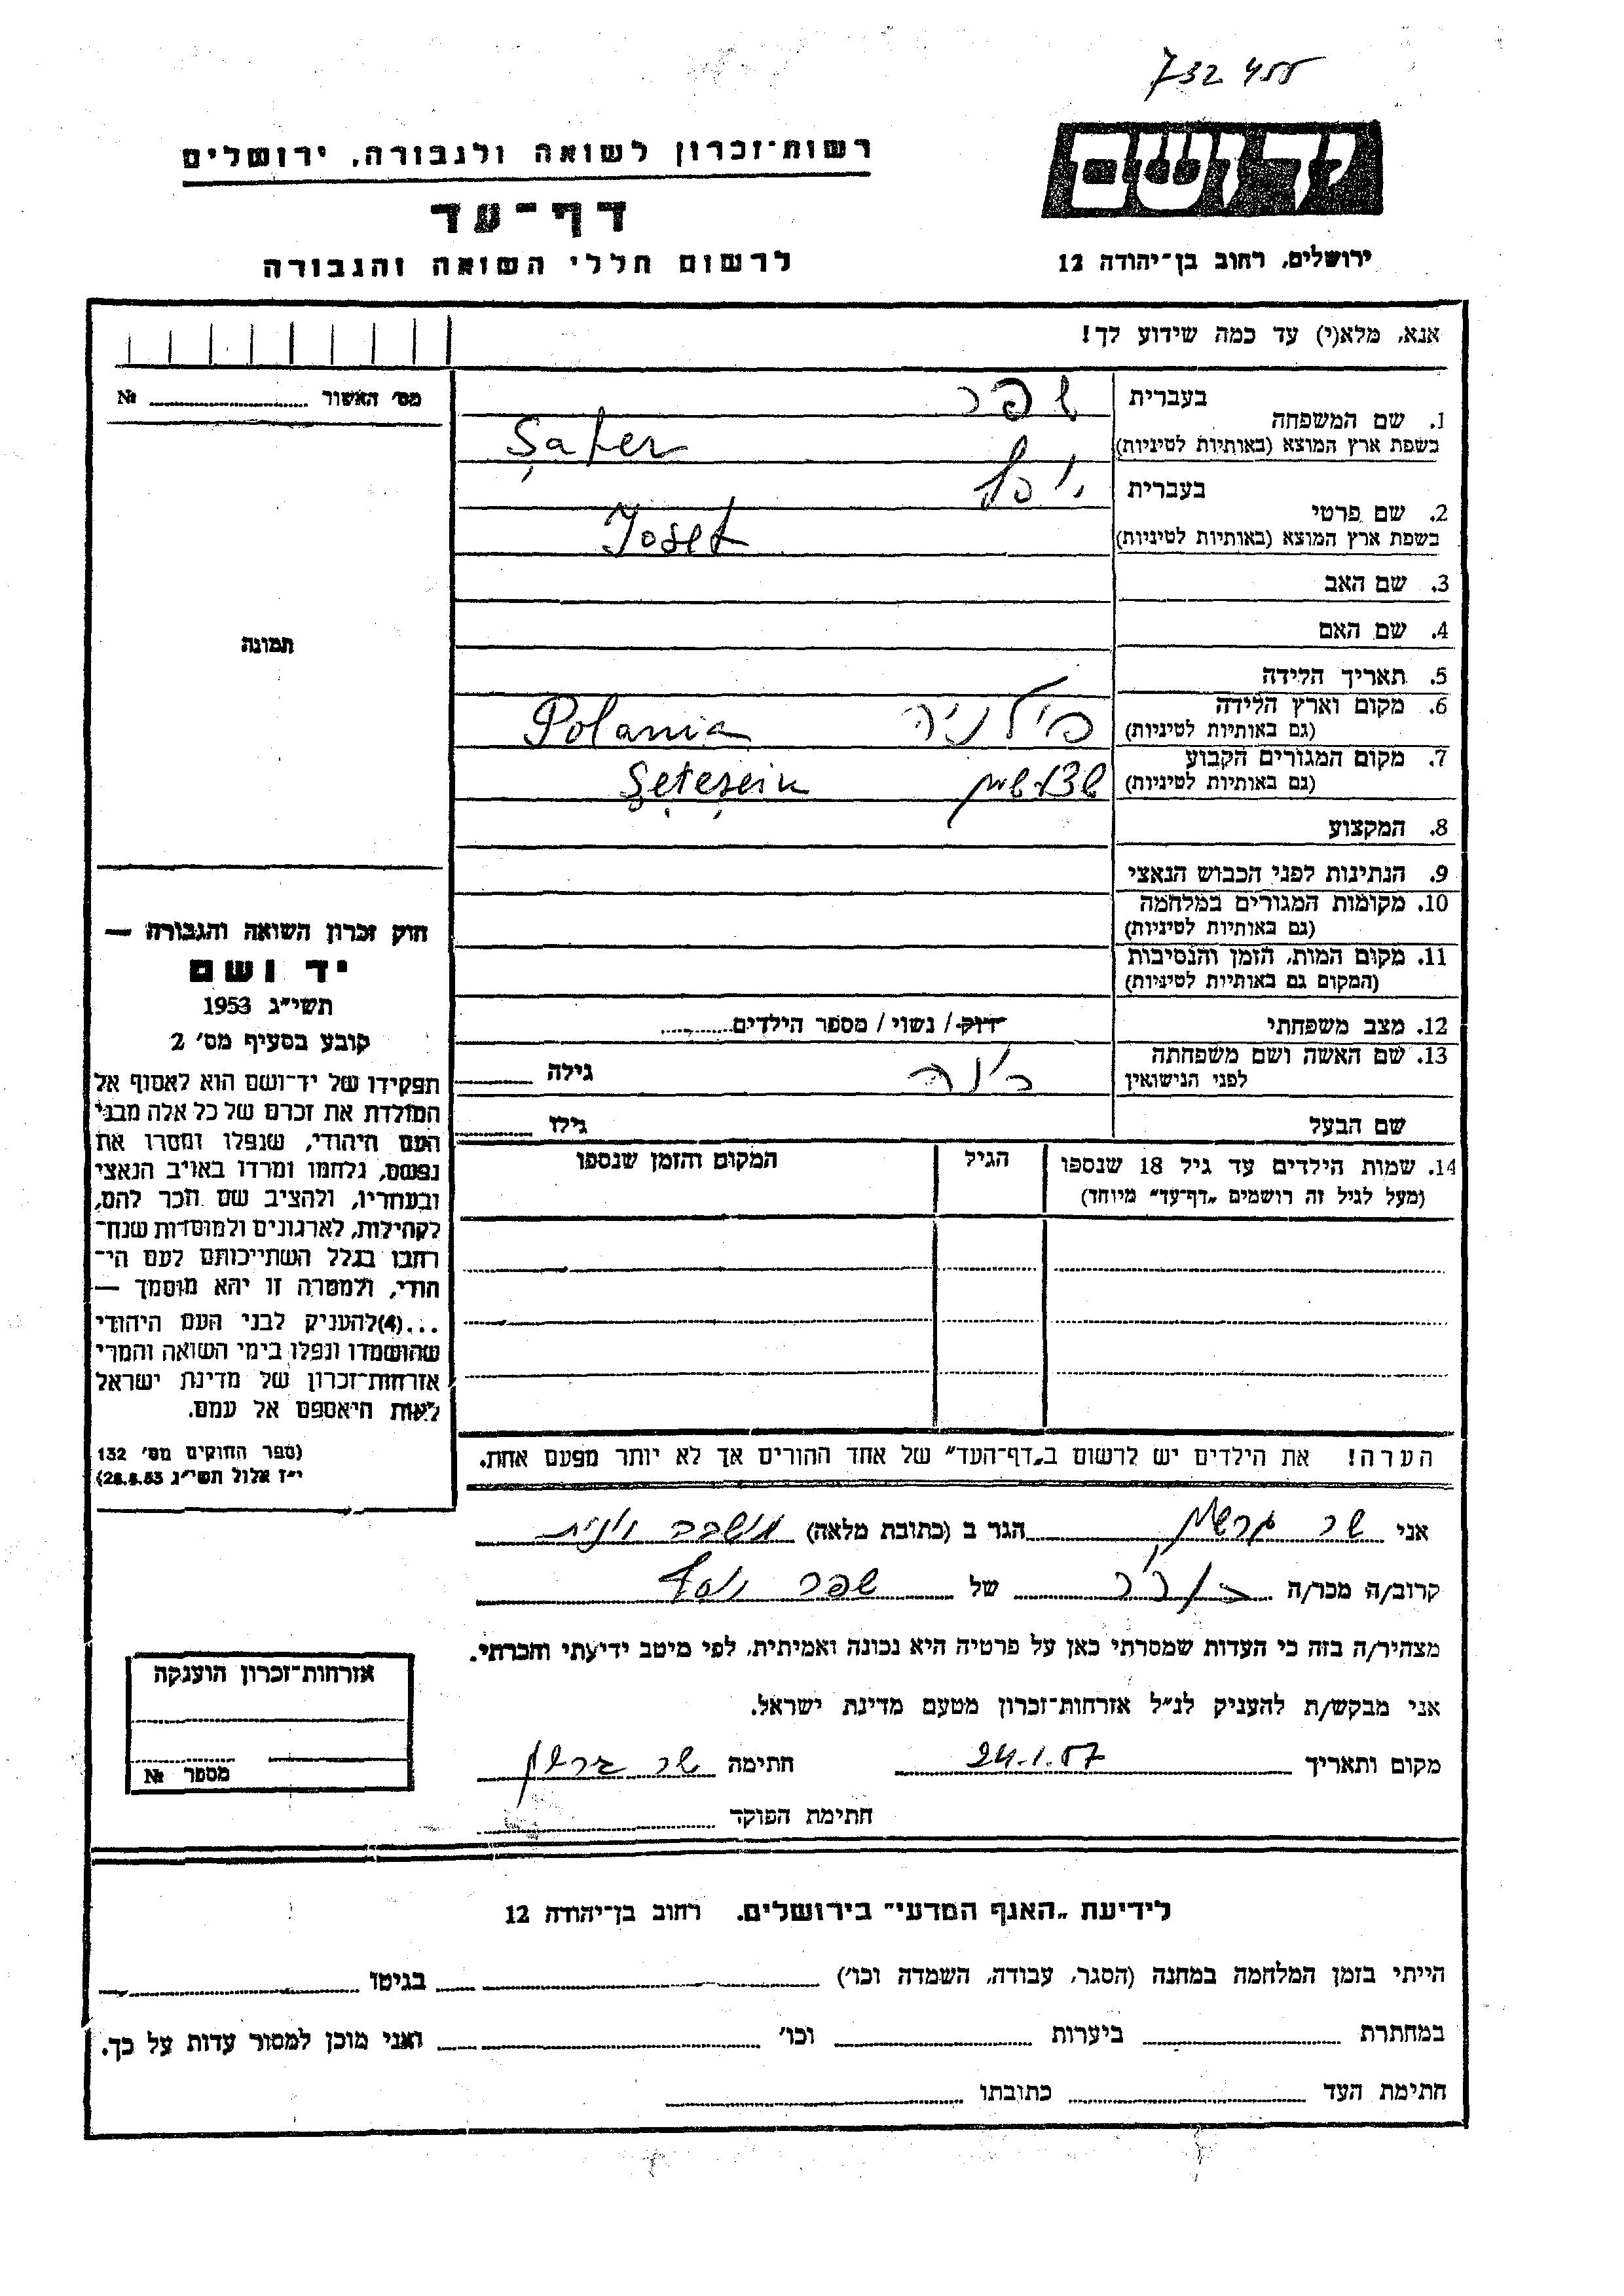 732 455
יד ושם
רשות־זכרון לשואה ולגבורה, ירושלים
דף־עד
לרשום חללי השואה והגבורה
ירושלים, רחוב בן־יהודה 12
אנא, מלא(י) עד כמה שידוע לך!
מס׳ האשור № 
1. שם המשפחה בעברית שפר
בשפת ארץ המוצא (באותיות לטיניות) Şafer
2. שם פרטי בעברית יוסף
בשפת ארץ המוצא (באותיות לטיניות) Josef
3. שם האב
4. שם האם
תמונה
5. תאריך הלידה
6. מקום וארץ הלידה פולניה Polania
(גם באותיות לטיניות)
7. מקום המגורים הקבוע
(גם באותיות לטיניות)
8. המקצוע
9. הנתינות לפני הכבוש הנאצי
10. מקומות המגורים במלחמה
(גם באותיות לטיניות)
11. מקום המות, הזמן והנסיבות
(המקום גם באותיות לטיניות)
12. מצב משפחתי רווק / נשוי / מספר הילדים
13. שם האשה ושם משפחתה גילה
לפני הנישואין
שם הבעל גילו
14. שמות הילדים עד גיל 18 שנספו הגיל המקום והזמן שנספו
(מעל לגיל זה רושמים „דף־עד״ מיוחד)
חוק זכרון השואה והגבורה —
יד ושם
תשי״ג 1953
קובע בסעיף מס׳ 2
תפקידו של יד־ושם הוא לאסוף אל
המולדת את זכרם של כל אלה מבני
העם היהודי, שנפלו ומסרו את
נפשם, נלחמו ומרדו באויב הנאצי
ובעוזריו, ולהציב שם וזכר להם,
לקהילות, לארגונים ולמוסדות שנח־
רבו בגלל השתייכותם לעם הי־
הודי, ולמטרה זו יהא מוסמך —
...(4)להעניק לבני העם היהודי
שהושמדו ונפלו בימי השואה והמרי
אזרחות־זכרון של מדינת ישראל
לאות היאספם אל עמם.
(ספר החוקים מס׳ 132
י״ז אלול תשי״ג 28.8.53)
הערה! את הילדים יש לרשום ב„דף־העד״ של אחד ההורים אך לא יותר מפעם אחת.
אני שר גרשון הגר ב (כתובת מלאה) מושב
קרוב/ה מכר/ה של שפר יוסף
מצהיר/ה בזה כי העדות שמסרתי כאן על פרטיה היא נכונה ואמיתית, לפי מיטב ידיעתי והכרתי.
אני מבקש/ת להעניק לנ״ל אזרחות־זכרון מטעם מדינת ישראל.
מקום ותאריך 24.1.57 חתימה שר גרשון
חתימת הפוקד
אזרחות־זכרון הוענקה
מספר №
לידיעת „האגף המדעי״ בירושלים, רחוב בן־יהודה 12
הייתי בזמן המלחמה במחנה (הסגר, עבודה, השמדה וכו׳) בגיטו
במחתרת ביערות וכו׳ ואני מוכן למסור עדות על כך.
חתימת העד כתובתו